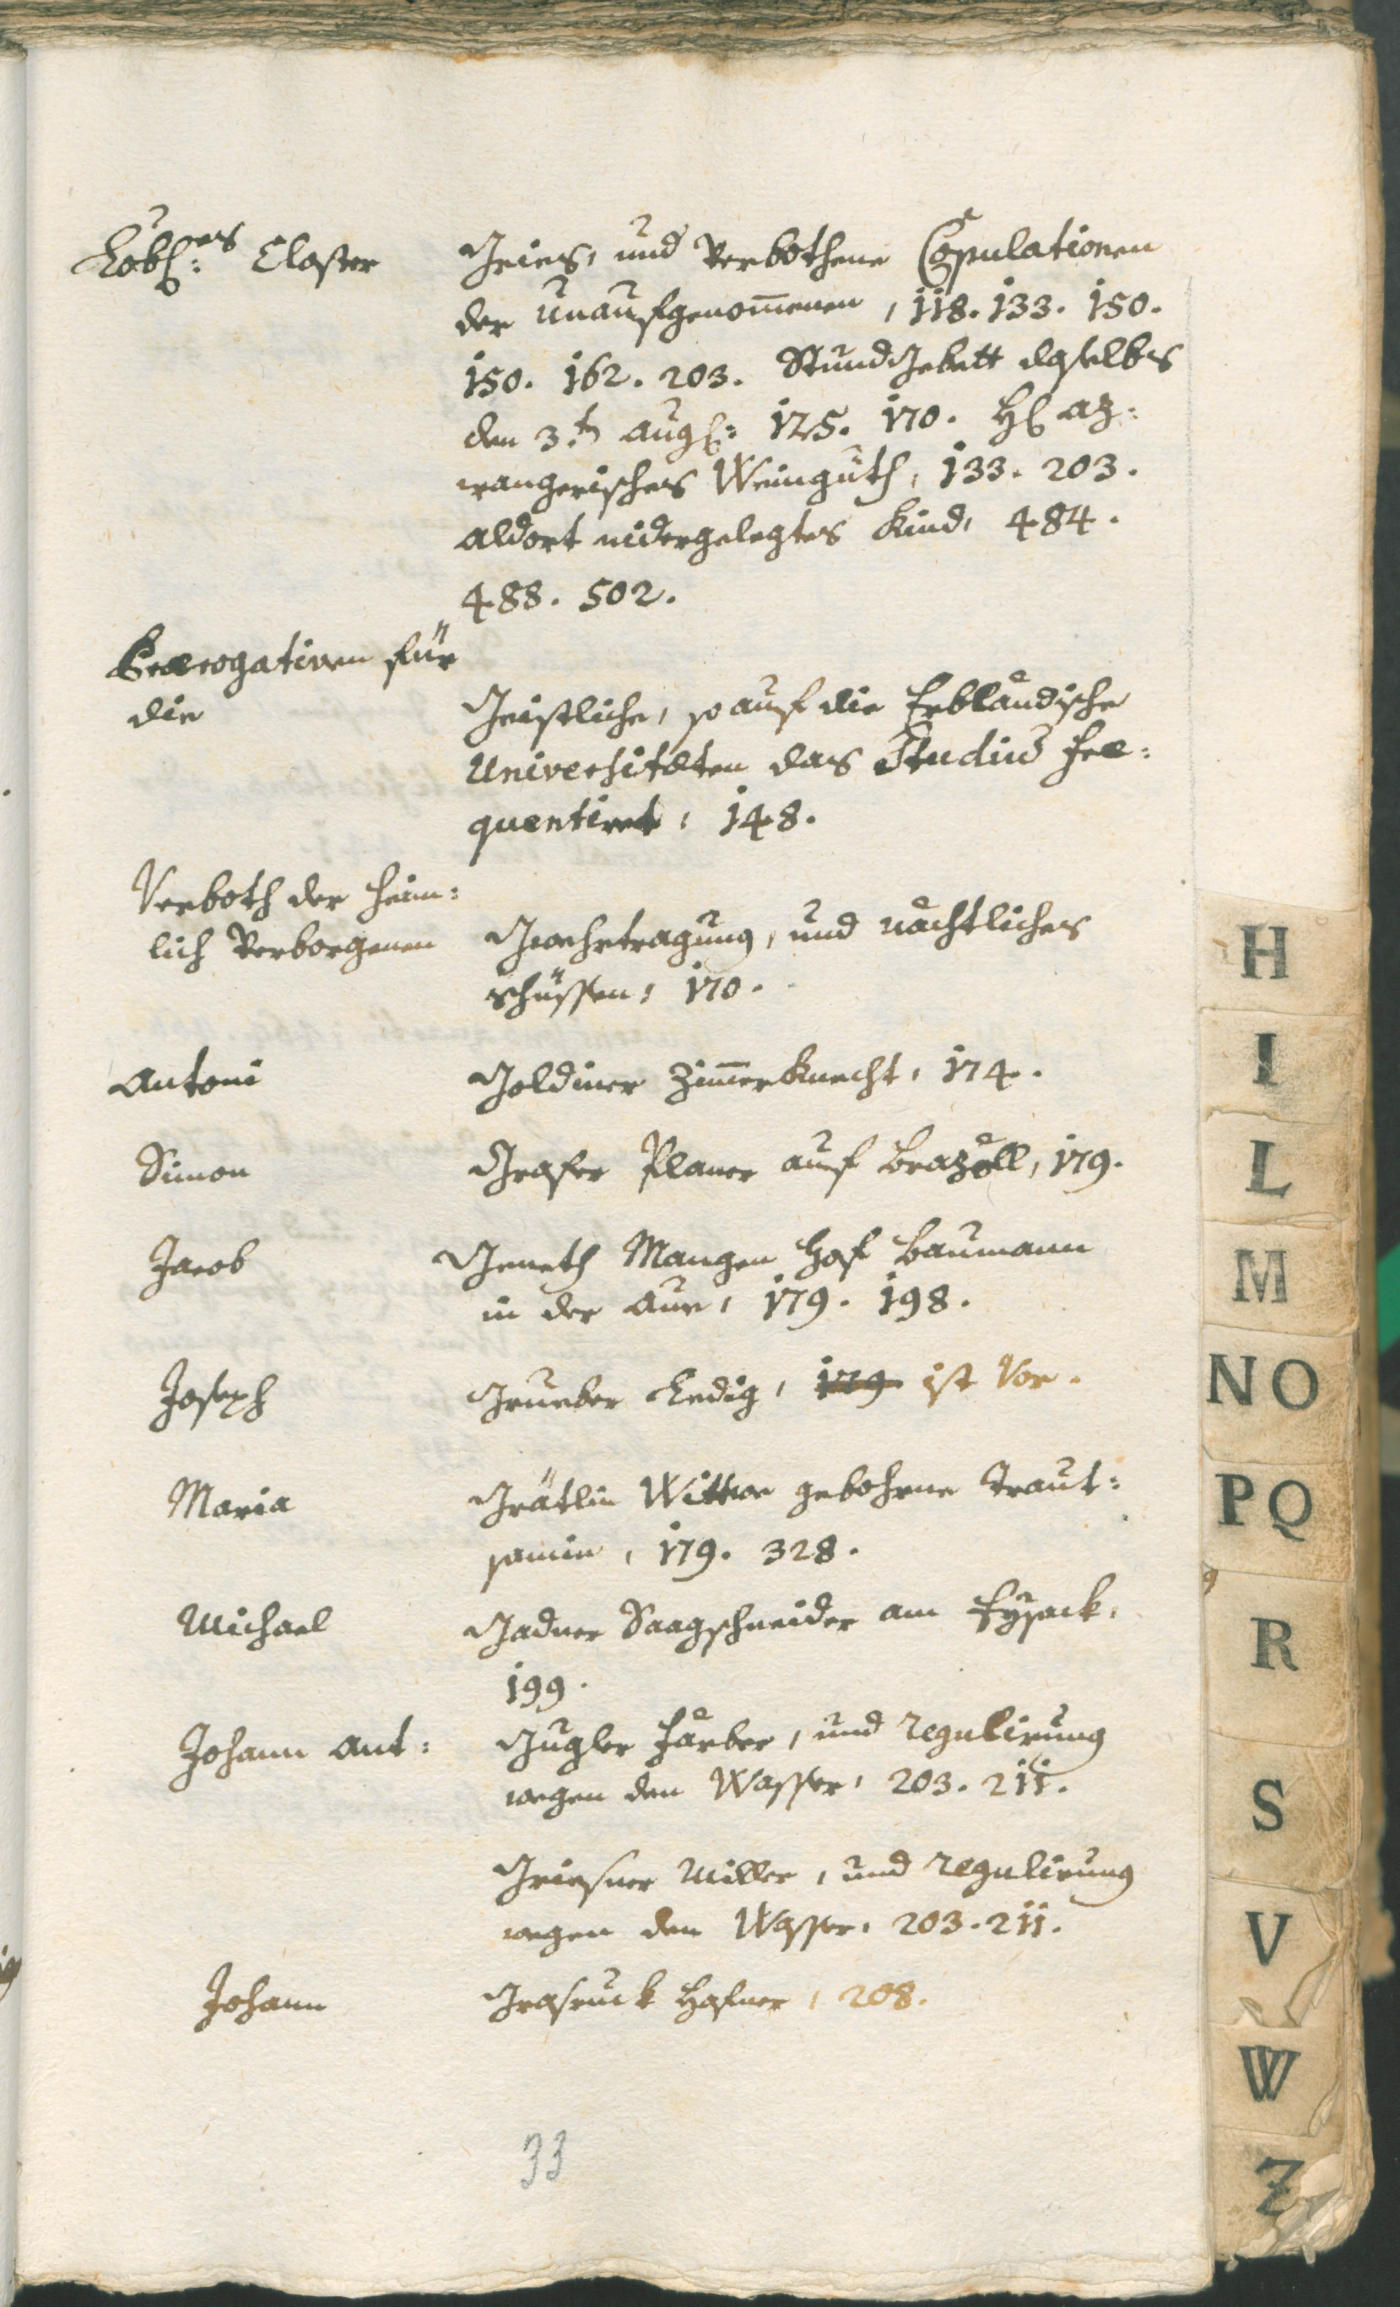 Löbl:es Closter
Gries, und Verbothene Copulationen
der Unaufgenom̅enen, 118. 133. 150.
150. 162. 203. Stund Gebett daselbs
den 3.t Aug: 175. 170. H
rangerisches Weinguth, 133. 203.
aldort nidergelegtes Kind, 484.
488. 502.
Prærogativen für
die
Geistliche, so auf die Erbländische
Universitæten das Studiū fre=
quentiret, 148.
Verboth der heim=
lich Verborgenen
Gwehrtragung, und nächtliches
schüssen, 170.
Antoni
Goldiner Zim̅erKnecht, 174.
Simon
Grafer Planer auf Brazöll, 179.
Jacob
Gmeth Mangen Hof Baumann
in der Aue, 179. 198.
Joseph
Grueber Ledig, 179 ist Vor.
Maria
Grätlin Wittwe gebohrne Traut=
samin, 179. 328.
Michael
Gadner Saagschneider am Eysack,
199.
Johann Ant:
Gugler Färber, und regulirung
wegen den Wasser, 203. 211.
Griesner Miller, und regulirung
wegen den Wasser, 203. 211.
Johann
Grasruck Hafner, 208.
33
H
I
L
M
NO
PQ
R
S
V
W
Z